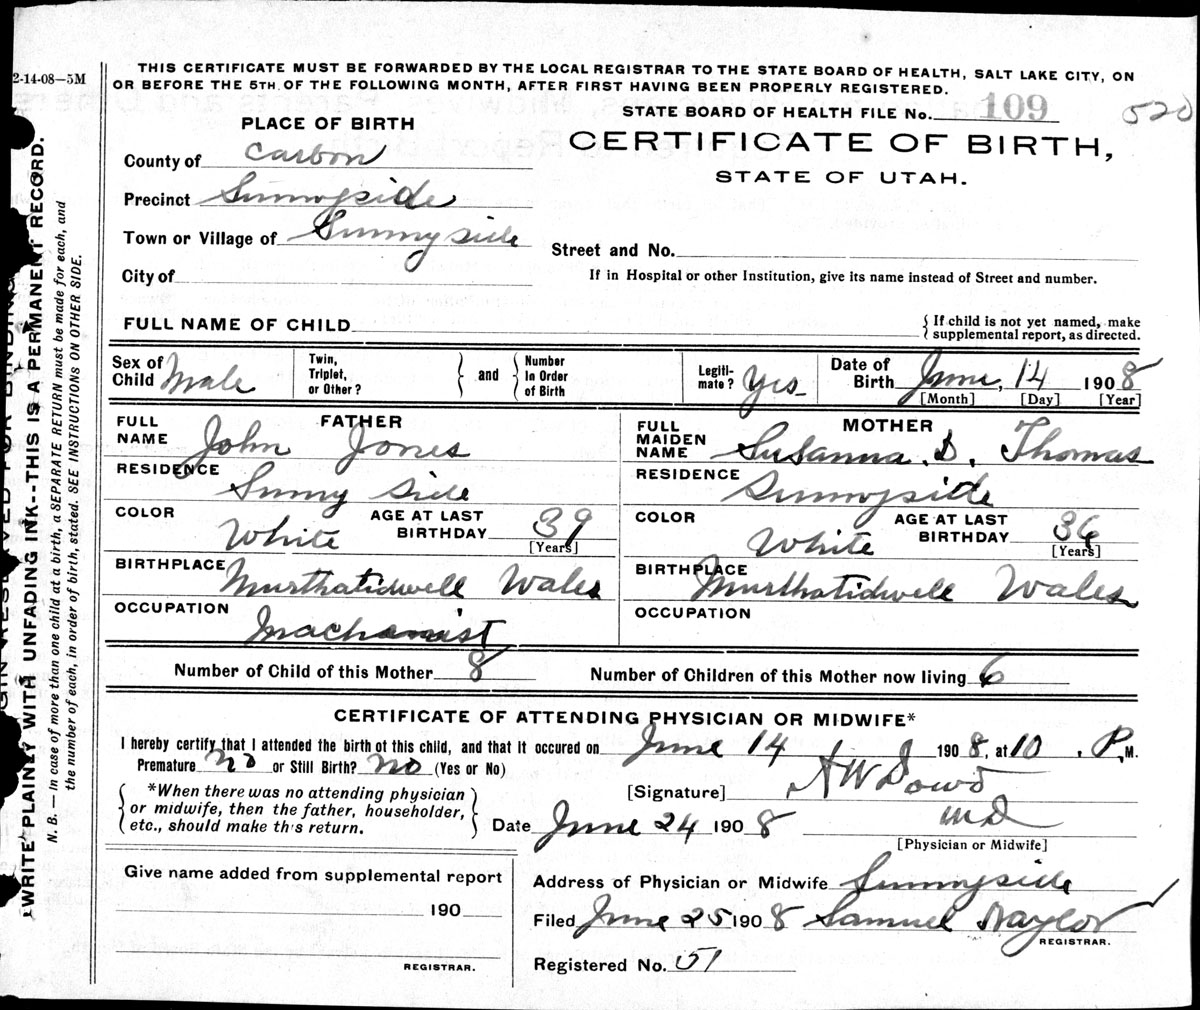 2-14-08—5M
THIS CERTIFICATE MUST BE FORWARDED BY THE LOCAL REGISTRAR TO THE STATE BOARD OF HEALTH, SALT LAKE CITY, ON
OR BEFORE THE 5TH OF THE FOLLOWING MONTH, AFTER FIRST HAVING BEEN PROPERLY REGISTERED.
STATE BOARD OF HEALTH FILE No. 109 520
PLACE OF BIRTH
CERTIFICATE OF BIRTH,
STATE OF UTAH.
County of Carbon
Precinct Sunnyside
Town or Village of Sunnyside
Street and No.
City of
If in Hospital or other Institution, give its name instead of Street and number.
FULL NAME OF CHILD
{ If child is not yet named, make
supplemental report, as directed.
Sex of Child Male Twin, Triplet, or Other? } and { Number In Order of Birth Legiti-mate? Yes Date of Birth June, 14 1908
[Month] [Day] [Year]
FATHER
FULL NAME John Jones
MOTHER
FULL MAIDEN NAME Susanna. D. Thomas
RESIDENCE Sunny Side
RESIDENCE Sunnyside
COLOR White AGE AT LAST BIRTHDAY 39
[Years]
COLOR White AGE AT LAST BIRTHDAY 36
[Years]
BIRTHPLACE Murthatidwell Wales
BIRTHPLACE Murthatidwell Wales
OCCUPATION Machanist
OCCUPATION
Number of Child of this Mother 8 Number of Children of this Mother now living 6
CERTIFICATE OF ATTENDING PHYSICIAN OR MIDWIFE*
I hereby certify that I attended the birth of this child, and that it occured on June 14 1908, at 10, P.M.
Premature No or Still Birth? No (Yes or No)
[Signature] A W Dowd
{ *When there was no attending physician
or midwife, then the father, householder,
etc., should make this return. }
Date June 24 1908 MD
[Physician or Midwife]
Give name added from supplemental report
190
REGISTRAR.
Address of Physician or Midwife Sunnyside
Filed June 25 1908 Samuel Naylor
REGISTRAR.
Registered No. 51
WRITE PLAINLY WITH UNFADING INK--THIS IS A PERMANENT RECORD.
N. B. — In case of more than one child at a birth, a SEPARATE RETURN must be made for each, and
the number of each, in order of birth, stated. SEE INSTRUCTIONS ON OTHER SIDE.